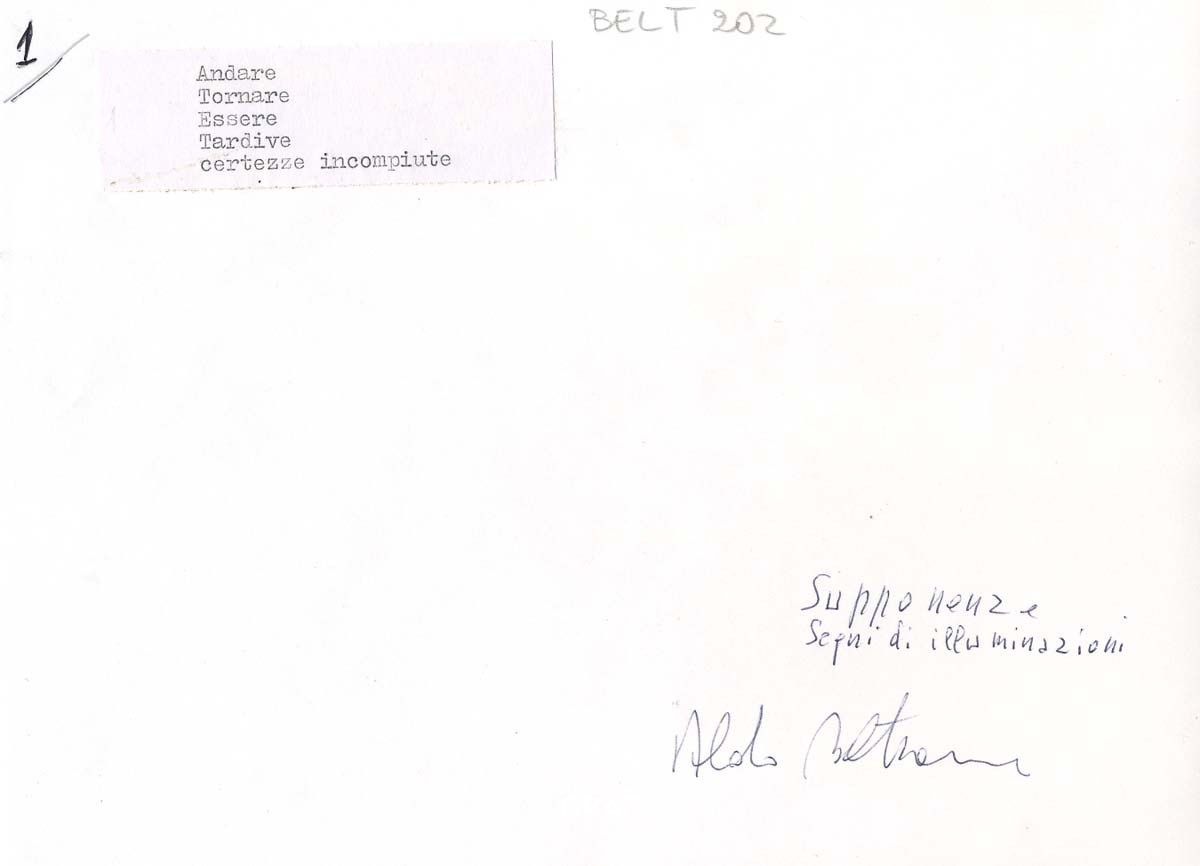 BELT 202
1/
Andare
Tornare
Essere
Tardive
certezze incompiute
Supponenze
Segni di illuminazioni
Aldo Beltrame